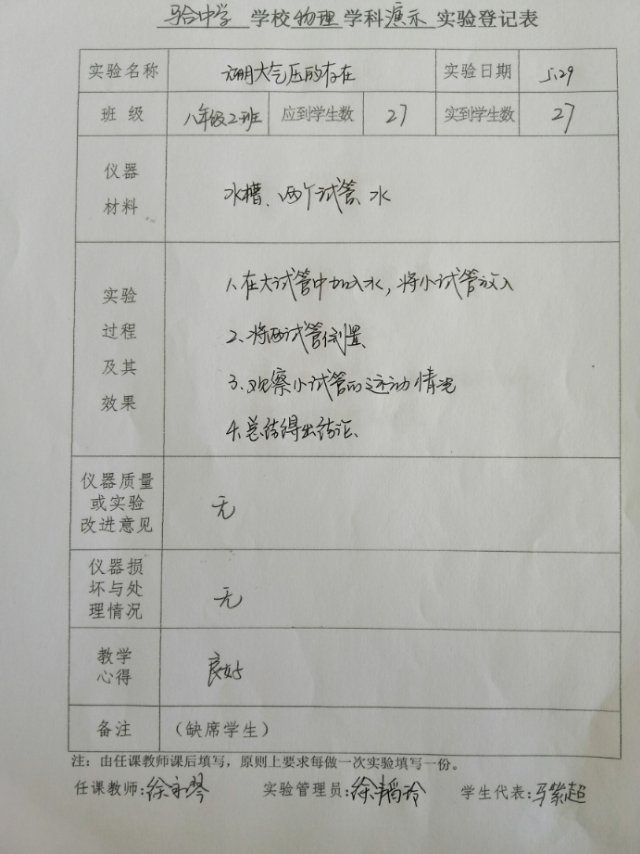 马合中学 学校 物理 学科 演示 实验登记表
实验名称 证明大气压的存在 实验日期 5.29
班 级 八年级2班 应到学生数 27 实到学生数 27
仪器
材料
水槽、两个试管、水
实验
过程
及其
效果
1.在大试管中加入水，将小试管放入
2.将两试管倒置
3.观察小试管的运动情况
4.总结得出结论.
仪器质量
或实验
改进意见
无
仪器损
坏与处
理情况
无
教学
心得
良好
备注 （缺席学生）
注：由任课教师课后填写，原则上要求每做一次实验填写一份。
任课教师:徐永琴 实验管理员:徐韬玲 学生代表:马紫超